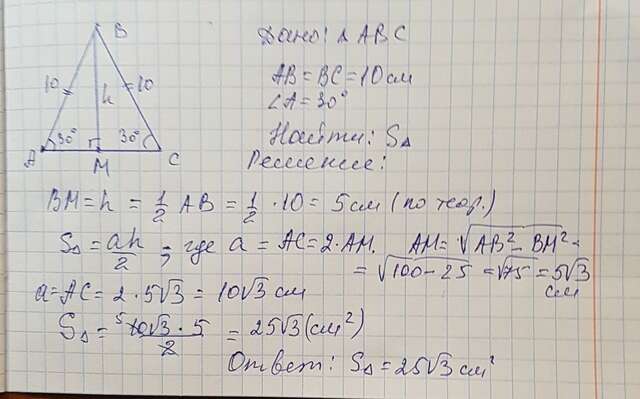 B
Дано: △ ABC
10 10
h
AB = BC = 10 см
∠A = 30°
30° 30°
A M C
Найти: S△
Решение:
BM = h = 1/2 AB = 1/2 · 10 = 5 см (по теор.)
S△ = ah/2; где a = AC = 2·AM. AM = √(AB² - BM²) =
= √(100 - 25) = √75 = 5√3 см
a = AC = 2 · 5√3 = 10√3 см
S△ = 5 10√3 · 5 / 2 = 25√3 (см²)
Ответ: S△ = 25√3 см²